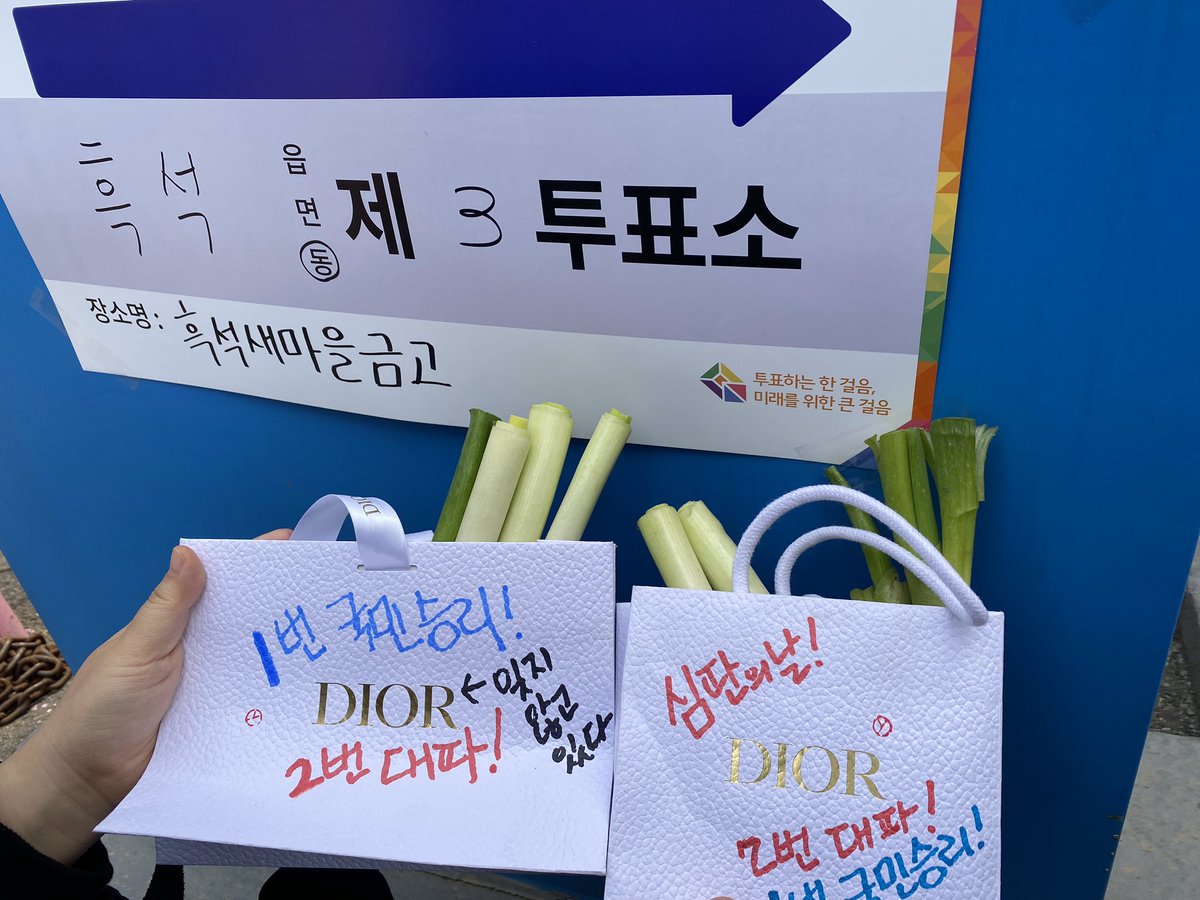 흑석 읍 면 동 제 3 투표소
장소명: 흑석새마을금고
투표하는 한 걸음,
미래를 위한 큰 걸음
DIOR
1번 국민승리!
DIOR ← 잊지
않고
있다
2번 대파!
심판의날!
DIOR
2번 대파!
1번 국민승리!